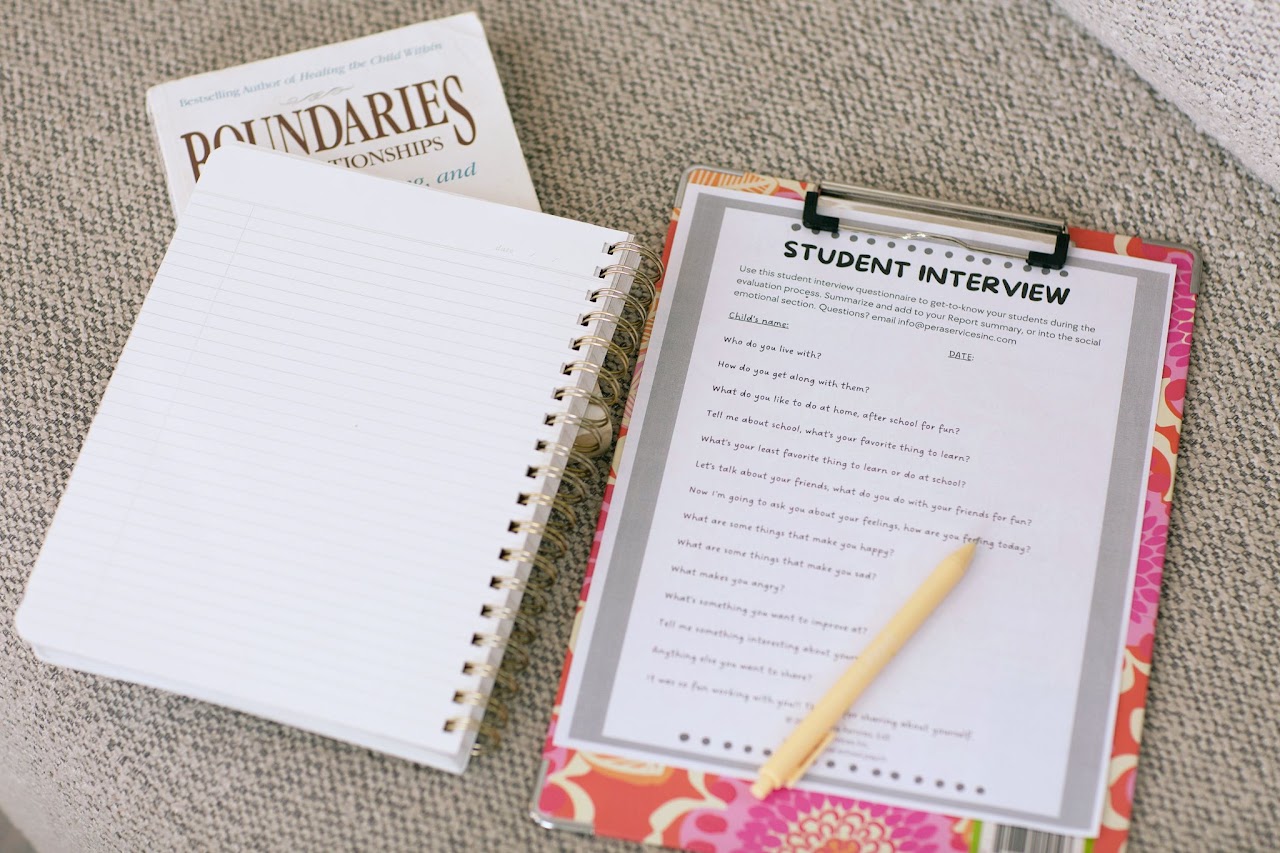 Bestselling Author of Healing the Child Within
BOUNDARIES
and
date
STUDENT INTERVIEW
Use this student interview questionnaire to get-to-know your students during the
evaluation process. Summarize and add to your Report summary, or into the social
emotional section. Questions? email info@peraservicesinc.com
Child's name:
DATE:
Who do you live with?
How do you get along with them?
What do you like to do at home, after school for fun?
Tell me about school, what's your favorite thing to learn?
What's your least favorite thing to learn or do at school?
Let's talk about your friends, what do you do with your friends for fun?
Now I'm going to ask you about your feelings, how are you feeling today?
What are some things that make you happy?
What are some things that make you sad?
What makes you angry?
What's something you want to improve at?
Tell me something interesting about
Anything else you want to share?
It was so fun working with you!! for sharing about yourself.